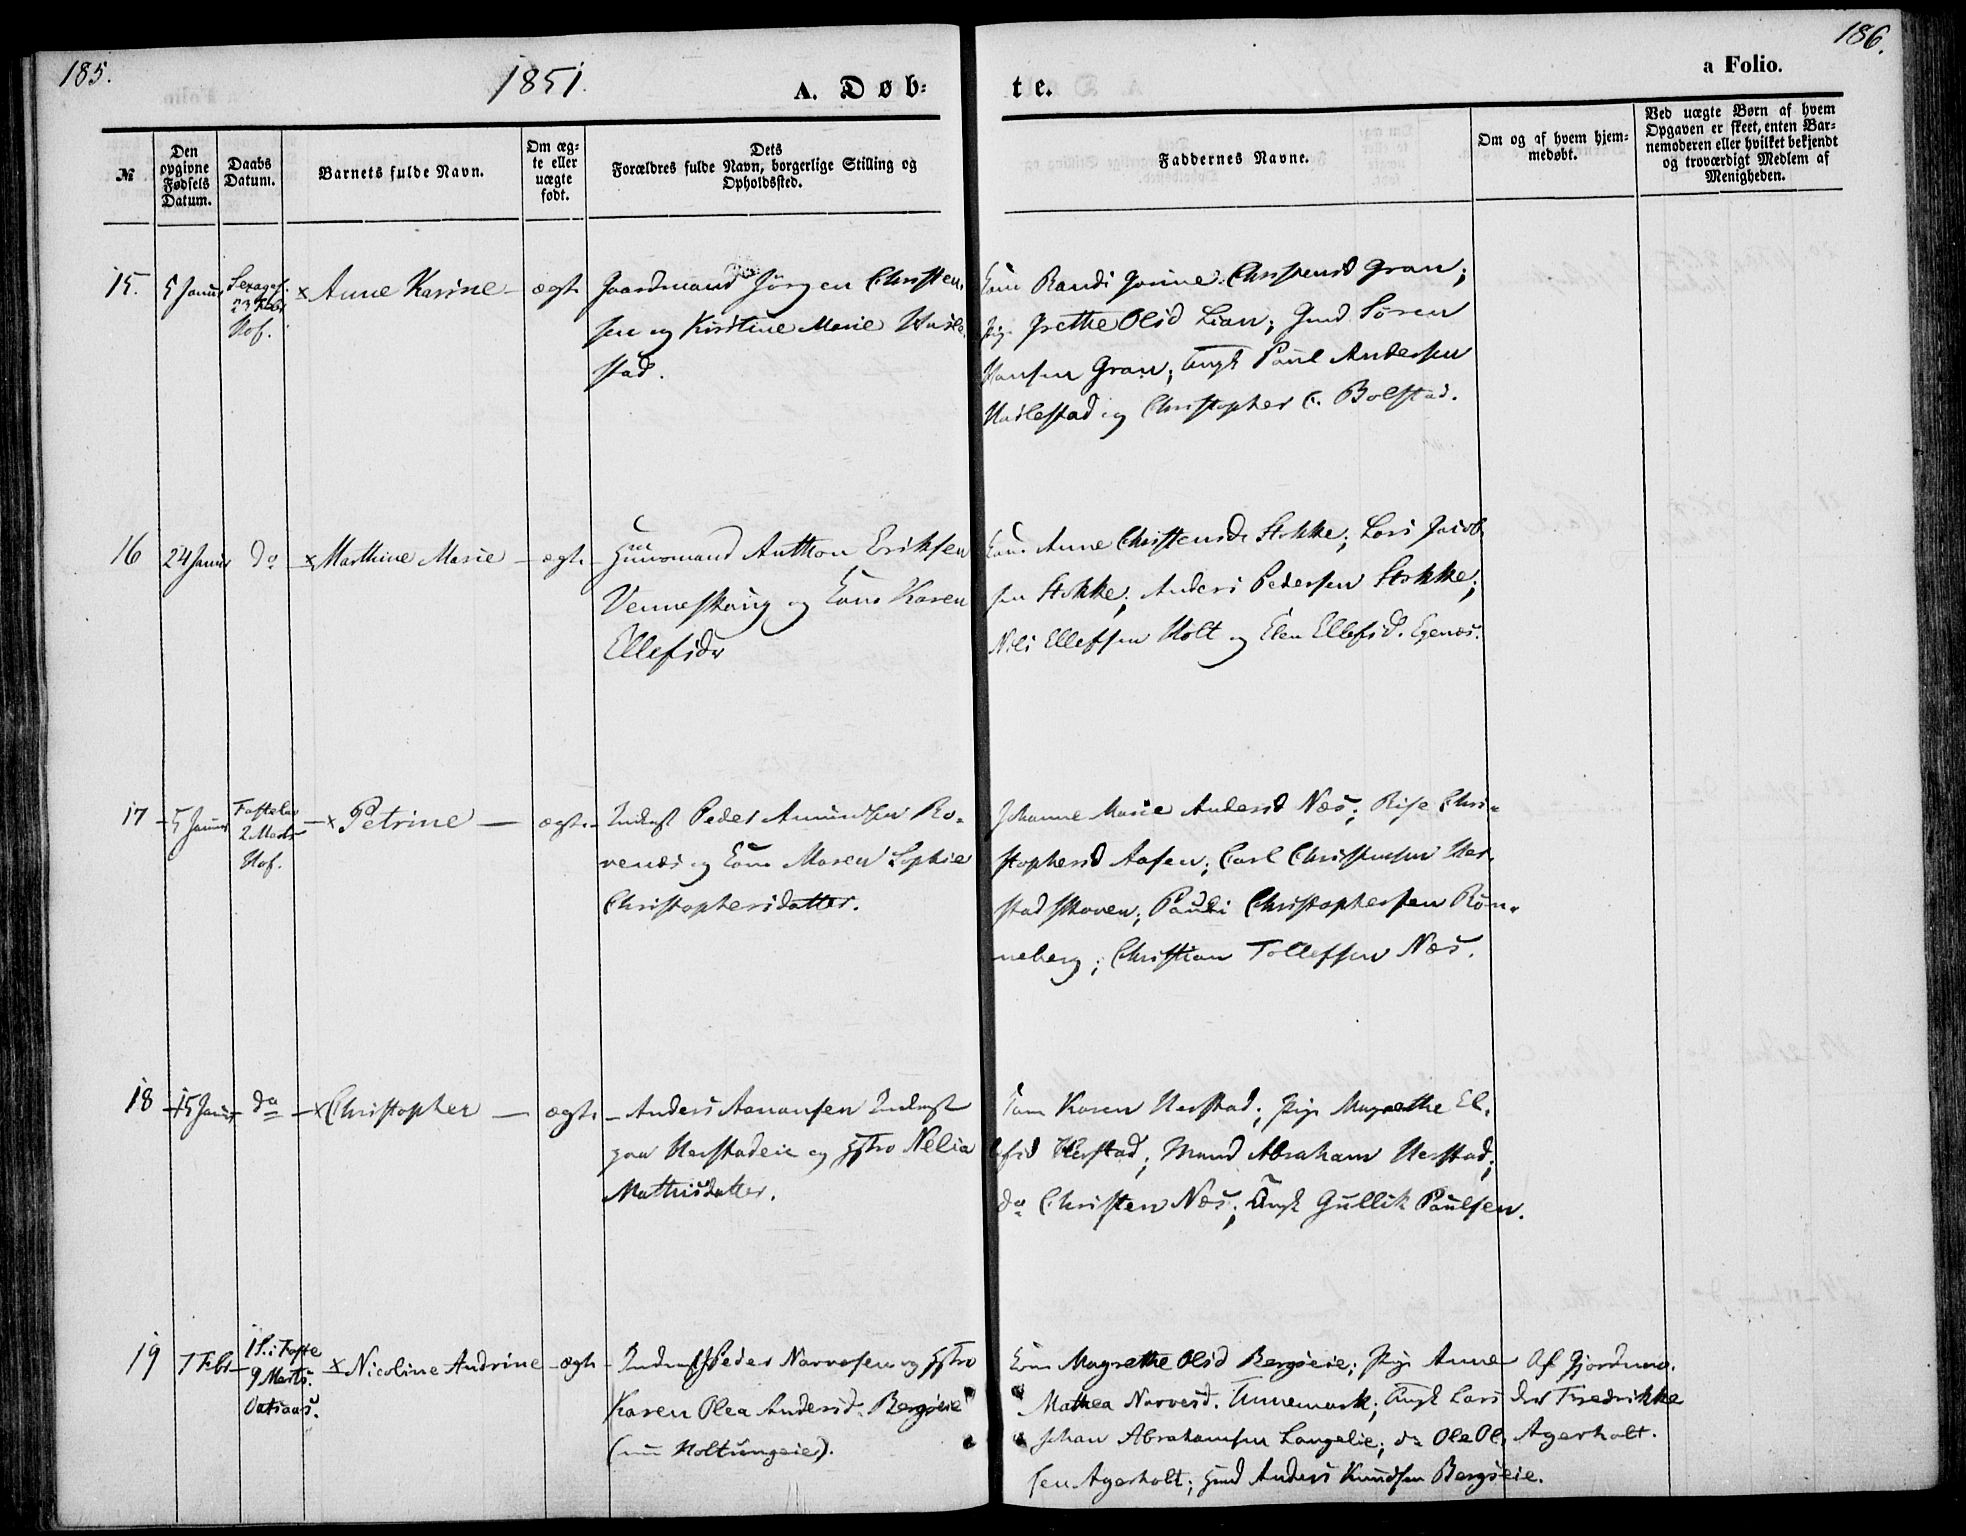 185.
1851.
A. Døb-
te.
a Folio.
186.
№
Den
opgivne
Fødsels
Datum.
Daabs
Datum.
Barnets fulde Navn.
Om æg-
te eller
uægte
født.
Dets
Forældres fulde Navn, borgerlige Stilling og
Opholdssted.
Faddernes Navne.
Om og af hvem hjem-
medøbt.
Ved uægte Børn af hvem
Opgaven er skeet, enten Bar-
nemoderen eller hvilket bekjendt
og troværdigt Medlem af
Menigheden.
15. 5 Januar Sexages. × Anne Karine – ægte Gaardmand Jörgen Christen-
23 Febr
Hof.
sen og Kirstine Marie
stad.
Kone Randi Christensd Gran;
Pige Grethe Olsd Lian; Gmd Sören
Hansen Gran; Ungk Paul Andersen
og Christopher C. Bolstad.
16 24 Januar do × Marthine Marie – ægte. Huusmand Anthon Eriksen
og Kone Karen
Ellefsdr
Kone Anne Christensdr Stokke; Lars Jacob-
sen Stokke; Anders Pedersen Stokke;
Nils Ellefsen Holt og Elen Ellefsd. Egenæs.
17 – 5 Januar Fastelav – × Petrine – ægte. Inderst Peder Amundsen Ro-
2 Marts
Hof.
venæs og Kone Maren Sophie
Christophersdatter.
Johanne Marie Andersd Næs; Chri-
stophersd Aasen; Carl Christensen Her-
stadskoven; Christophersen Rön-
neberg; Christian Tollefsen Næs.
18 – 15 Januar do – × Christopher – ægte. – Anders Aanonsen Inderst
paa Herstadeie og Hstro Nelia
Mathisdatter.
Kone Karen Herstad; Pige Magrethe El-
lefsd Herstad; Mand Abraham Herstad;
do Christen Næs; Ungk Gullik Paulsen.
19 7 Febr 1 S. i Faste × Nicoline Andrine – ægte – Inderst Peder Narvesen og Hstro
9 Marts.
Karen Olea Andersd. Bergseie
(nu Holtungeie).
Kone Magrethe Olsd Bergseie; Pige Anne
Mathea Narvesd. Ungk Lars
Johan Abrahamsen Langelie; do Ole Ol-
sen Agerholt; Hmd Anders Knudsen Bergseie.
Af Gjordmo.
der Fredrikke
Agerholt.